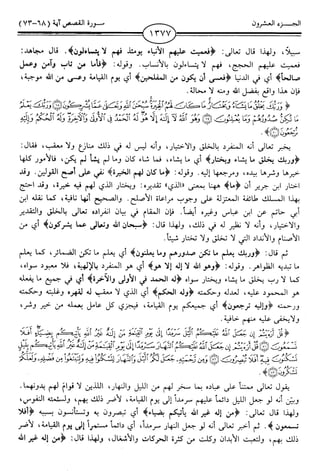 الجـــزء العشرون
١٣٧٧
سورة القصص آية (٦٨-٧٣)
سبيلاً، ولهذا قال تعالى: ﴿فعميت عليهم الأنباء يومئذ فهم لا يتساءلون﴾. قال مجاهد:
فعميت عليهم الحجج، فهم لا يتساءلون بالأنساب. وقوله: ﴿فأما من تاب وآمن وعمل
صالحاً﴾ أي في الدنيا ﴿فعسى أن يكون من المفلحين﴾ أي يوم القيامة وعسى من الله موجبة،
فإن هذا واقع بفضل الله ومنه لا محالة.
﴿وَرَبُّكَ يَخْلُقُ مَا يَشَاءُ وَيَخْتَارُ مَا كَانَ لَهُمُ الْخِيَرَةُ سُبْحَانَ اللَّهِ وَتَعَالَى عَمَّا يُشْرِكُونَ ۝ وَرَبُّكَ يَعْلَمُ
مَا تُكِنُّ صُدُورُهُمْ وَمَا يُعْلِنُونَ ۝ وَهُوَ اللَّهُ لَا إِلَهَ إِلَّا هُوَ لَهُ الْحَمْدُ فِي الْأُولَى وَالْآخِرَةِ وَلَهُ الْحُكْمُ وَإِلَيْهِ
تُرْجَعُونَ ۝﴾.
يخبر تعالى أنه المنفرد بالخلق والاختيار، وأنه ليس له في ذلك منازع ولا معقب، فقال:
﴿وربك يخلق ما يشاء ويختار﴾ أي ما يشاء، فما شاء كان وما لم يشأ لم يكن، فالأمور كلها
خيرها وشرها بيده، ومرجعها إليه. وقوله: ﴿ما كان لهم الخيرة﴾ نفي على أصح القولين. وقد
اختار ابن جرير أن ﴿ما﴾ ههنا بمعنى «الذي» تقديره: ويختار الذي لهم فيه خيرة، وقد احتج
بهذا المسلك طائفة المعتزلة على وجوب مراعاة الأصلح. والصحيح أنها نافية، كما نقله ابن
أبي حاتم عن ابن عباس وغيره أيضاً. فإن المقام في بيان انفراده تعالى بالخلق والتقدير
والاختيار، وأنه لا نظير له في ذلك، ولهذا قال: ﴿سبحان الله وتعالى عما يشركون﴾ أي من
الأصنام والأنداد التي لا تخلق ولا تختار شيئاً.
ثم قال: ﴿وربك يعلم ما تكن صدورهم وما يعلنون﴾ أي يعلم ما تكن الضمائر، كما يعلم
ما تبديه الظواهر. وقوله: ﴿وهو الله لا إله إلا هو﴾ أي هو المنفرد بالإلهية، فلا معبود سواه،
كما لا رب يخلق ما يشاء ويختار سواه ﴿له الحمد في الأولى والآخرة﴾ أي في جميع ما يفعله
هو المحمود عليه، لعدله وحكمته ﴿وله الحكم﴾ أي الذي لا معقب له لقهره وغلبته وحكمته
ورحمته ﴿وإليه ترجعون﴾ أي جميعكم يوم القيامة، فيجزي كل عامل بعمله من خير وشر،
ولايخفى عليه منهم خافية.
﴿قُلْ أَرَأَيْتُمْ إِن جَعَلَ اللَّهُ عَلَيْكُمُ اللَّيْلَ سَرْمَدًا إِلَى يَوْمِ الْقِيَامَةِ مَنْ إِلَهٌ غَيْرُ اللَّهِ يَأْتِيكُم بِضِيَاءٍ أَفَلَا
تَسْمَعُونَ ۝ قُلْ أَرَأَيْتُمْ إِن جَعَلَ اللَّهُ عَلَيْكُمُ النَّهَارَ سَرْمَدًا إِلَى يَوْمِ الْقِيَامَةِ مَنْ إِلَهٌ غَيْرُ اللَّهِ يَأْتِيكُم بِلَيْلٍ
تَسْكُنُونَ فِيهِ أَفَلَا تُبْصِرُونَ ۝ وَمِن رَّحْمَتِهِ جَعَلَ لَكُمُ اللَّيْلَ وَالنَّهَارَ لِتَسْكُنُوا فِيهِ وَلِتَبْتَغُوا مِن فَضْلِهِ وَلَعَلَّكُمْ
تَشْكُرُونَ ۝﴾.
يقول تعالى ممتناً على عباده بما سخر لهم من الليل والنهار، اللذين لا قوام لهم بدونهما.
وبيّن أنه لو جعل الليل دائماً عليهم سرمداً إلى يوم القيامة، لأضر ذلك بهم، ولسئمته النفوس،
ولهذا قال تعالى: ﴿من إله غير الله يأتيكم بضياء﴾ أي تبصرون به وتستأنسون بسببه ﴿أفلا
تسمعون﴾. ثم أخبر تعالى أنه لو جعل النهار سرمداً، أي دائماً مستمراً إلى يوم القيامة، لأضر
ذلك بهم، ولتعبت الأبدان وكلت من كثرة الحركات والأشغال، ولهذا قال: ﴿من إله غير الله